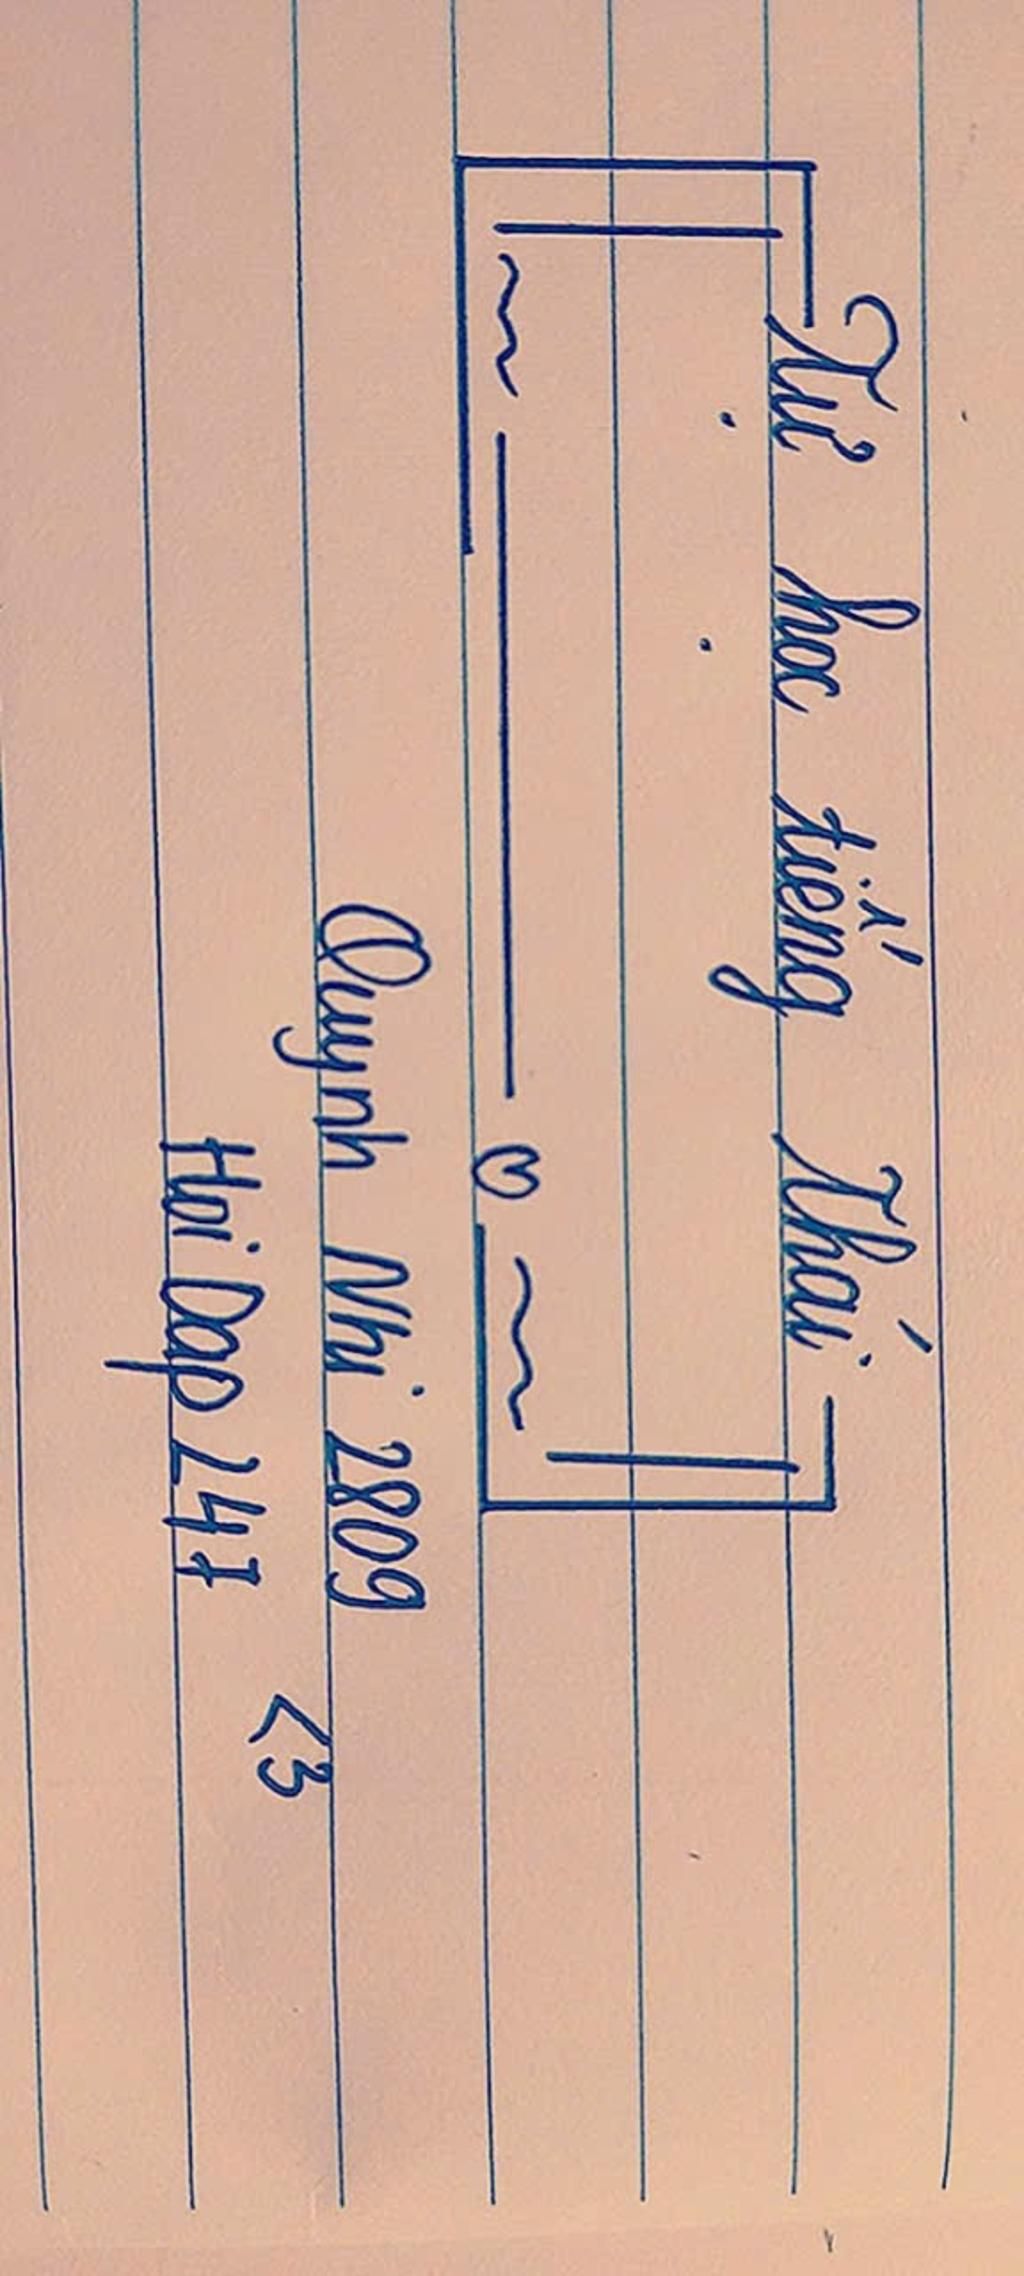 Tự học tiếng Thái
Quynh Nhi 2809
Hoi Dap 247
<3